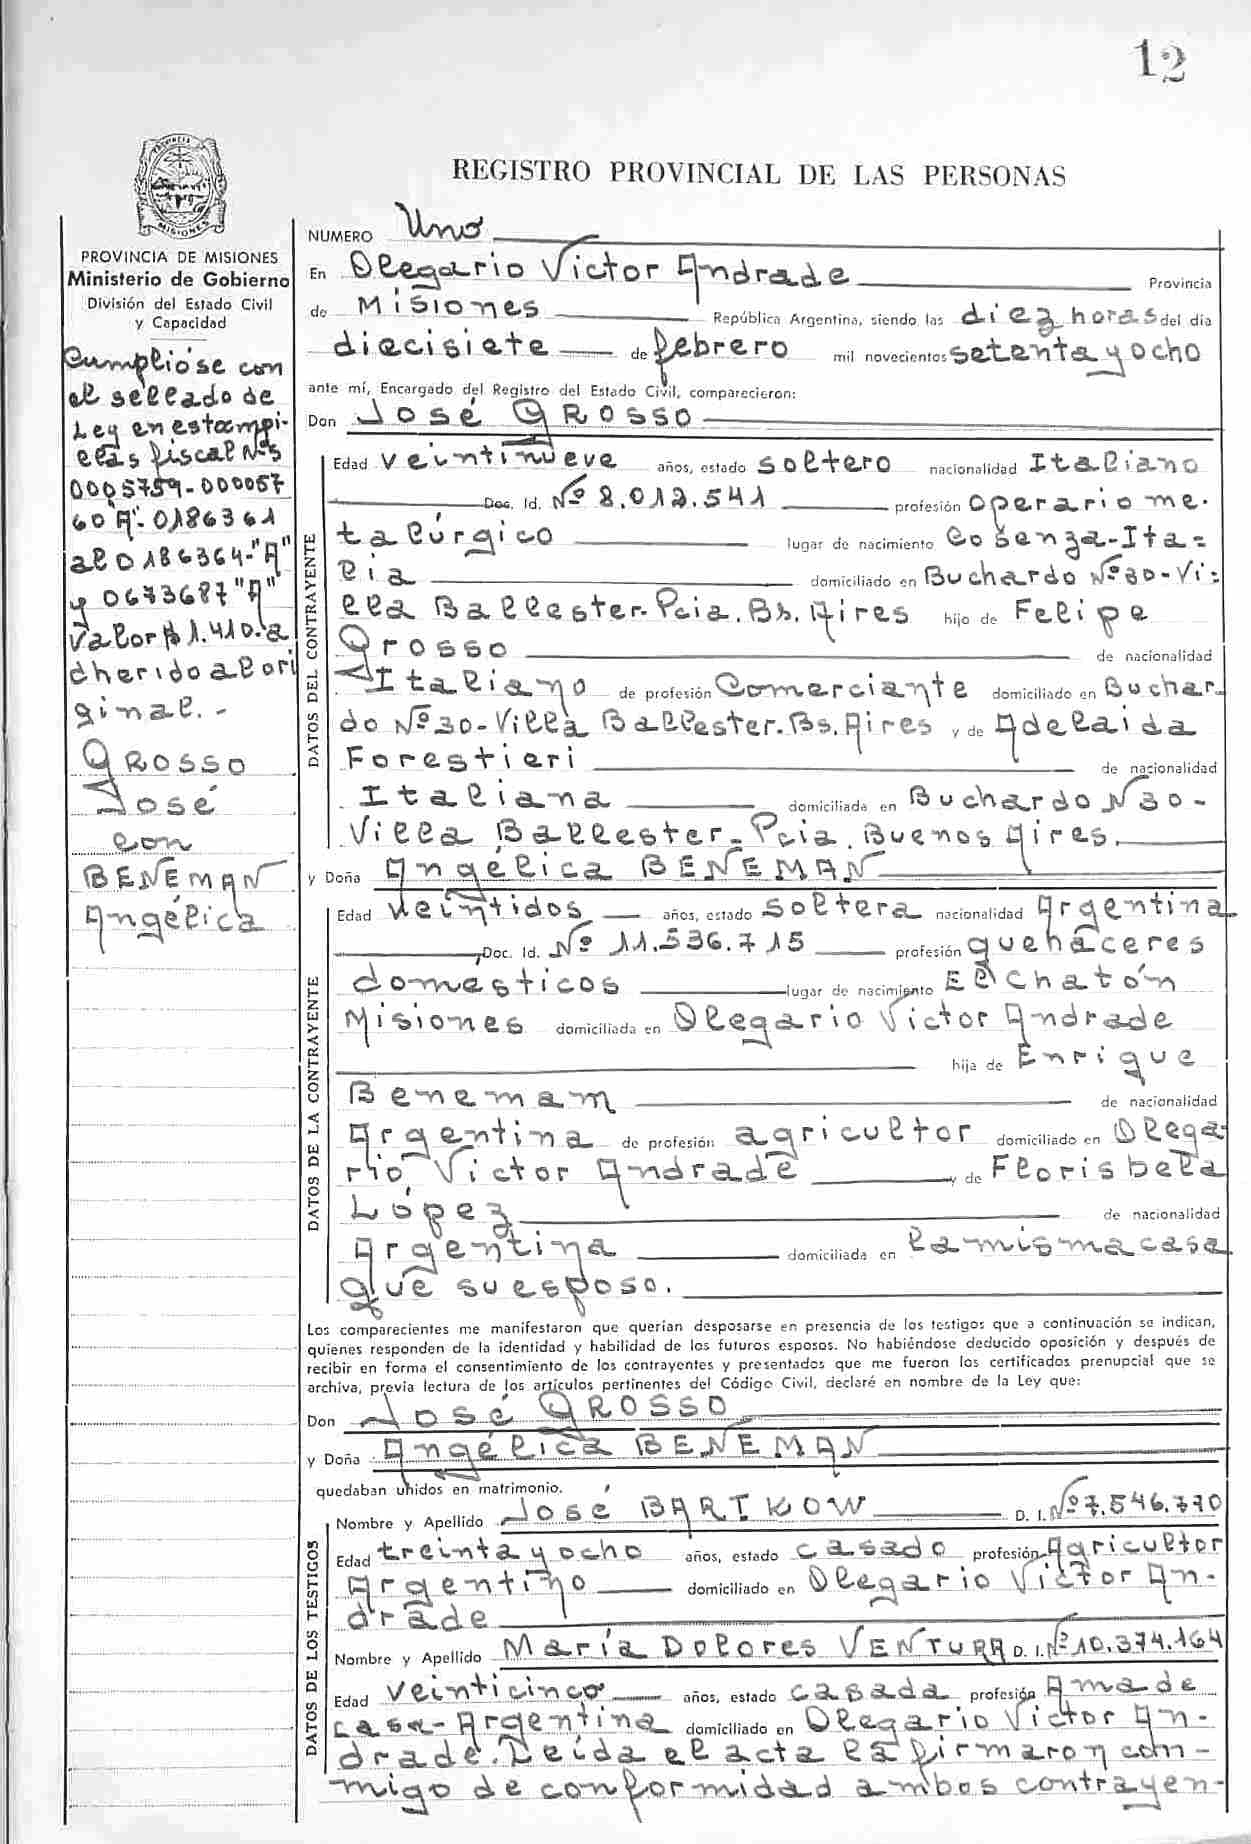 12
REGISTRO PROVINCIAL DE LAS PERSONAS
MISIONES
PROVINCIA DE MISIONES
Ministerio de Gobierno
División del Estado Civil
y Capacidad
Cumplióse con
el sellado de
Ley en estampi-
llas fiscal Nºs
0005759-000057
60"A". 0186361
al 0186364-"A"
y 0673687"A"
Valor $ 1.410.a
dherido al ori
ginal.-
GROSSO
José
con
BENEMAN
Angélica
NUMERO Uno
En Olegario Victor Andrade Provincia
de Misiones República Argentina, siendo las diez horas del dia
diecisiete de febrero mil novecientos setenta y ocho
ante mí, Encargado del Registro del Estado Civil, comparecieron:
Don José GROSSO
DATOS DEL CONTRAYENTE
Edad veintinueve años, estado soltero nacionalidad Italiano
Doc. Id. Nº 8.012.541 profesión operario me-
talúrgico lugar de nacimiento Cosenza-Ita-
lia domiciliado en Buchardo Nº30-Vi-
lla Ballester-Pcia. Bs. Aires hijo de Felipe
Grosso de nacionalidad
Italiano de profesión Comerciante domiciliado en Buchar-
do Nº30-Villa Ballester. Bs. Aires y de Adelaida
Forestieri de nacionalidad
Italiana domiciliada en Buchardo Nº30-
Villa Ballester-Pcia. Buenos Aires.
y Doña Angélica BENEMAN
DATOS DE LA CONTRAYENTE
Edad veintidos años, estado soltera nacionalidad Argentina
Doc. Id. Nº 11.536.715 profesión quehaceres
domésticos lugar de nacimiento El Chatón
Misiones domiciliada en Olegario Victor Andrade
hija de Enrique
Benemam de nacionalidad
Argentina de profesión agricultor domiciliado en Olega-
rio Victor Andrade y de Florisbela
López de nacionalidad
Argentina domiciliada en la misma casa
que su esposo.
Los comparecientes me manifestaron que querían desposarse en presencia de los testigos que a continuación se indican,
quienes responden de la identidad y habilidad de los futuros esposos. No habiéndose deducido oposición y después de
recibir en forma el consentimiento de los contrayentes y presentados que me fueron los certificados prenupcial que se
archiva, previa lectura de los artículos pertinentes del Código Civil, declaré en nombre de la Ley que:
Don José GROSSO
y Doña Angélica BENEMAN
quedaban unidos en matrimonio.
DATOS DE LOS TESTIGOS
Nombre y Apellido José BARTKOW D. I. Nº7.546.770
Edad treinta y ocho años, estado casado profesión Agricultor
Argentino domiciliado en Olegario Victor An-
drade
Nombre y Apellido María Dolores VENTURA D. I. Nº10.374.164
Edad veinticinco años, estado casada profesión Ama de
casa-Argentina domiciliado en Olegario Victor An-
drade. Leída el acta la firmaron con-
migo de conformidad ambos contrayen-